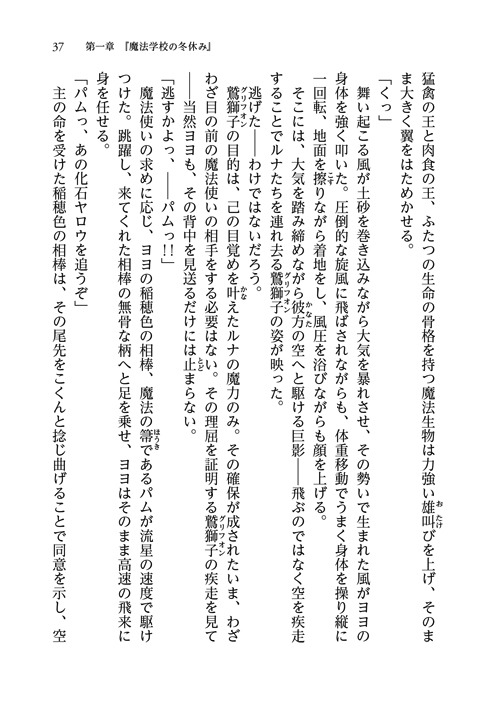 37　第一章　『魔法学校の冬休み』
猛禽の王と肉食の王、ふたつの生命の骨格を持つ魔法生物は力強い雄叫びを上げ、そのま
ま大きく翼をはためかせる。
「くっ」
舞い起こる風が土砂を巻き込みながら大気を暴れさせ、その勢いで生まれた風がヨヨの
身体を強く叩いた。圧倒的な旋風に飛ばされながらも、体重移動でうまく身体を操り縦に
一回転、地面を擦りながら着地をし、風圧を浴びながらも顔を上げる。
そこには、大気を踏み締めながら彼方の空へと駆ける巨影――飛ぶのではなく空を疾走
することでルナたちを連れ去る鷲獅子の姿が映った。
逃げた――わけではないだろう。
鷲獅子の目的は、己の目覚めを叶えたルナの魔力のみ。その確保が成されたいま、わざ
わざ目の前の魔法使いの相手をする必要はない。その理屈を証明する鷲獅子の疾走を見て
――当然ヨヨも、その背中を見送るだけには止まらない。
「逃すかよっ、――パムっ!!」
魔法使いの求めに応じ、ヨヨの稲穂色の相棒、魔法の箒であるパムが流星の速度で駆け
つけた。跳躍し、来てくれた相棒の無骨な柄へと足を乗せ、ヨヨはそのまま高速の飛来に
身を任せる。
「パムっ、あの化石ヤロウを追うぞ」
主の命を受けた稲穂色の相棒は、その尾先をこくんと捻じ曲げることで同意を示し、空